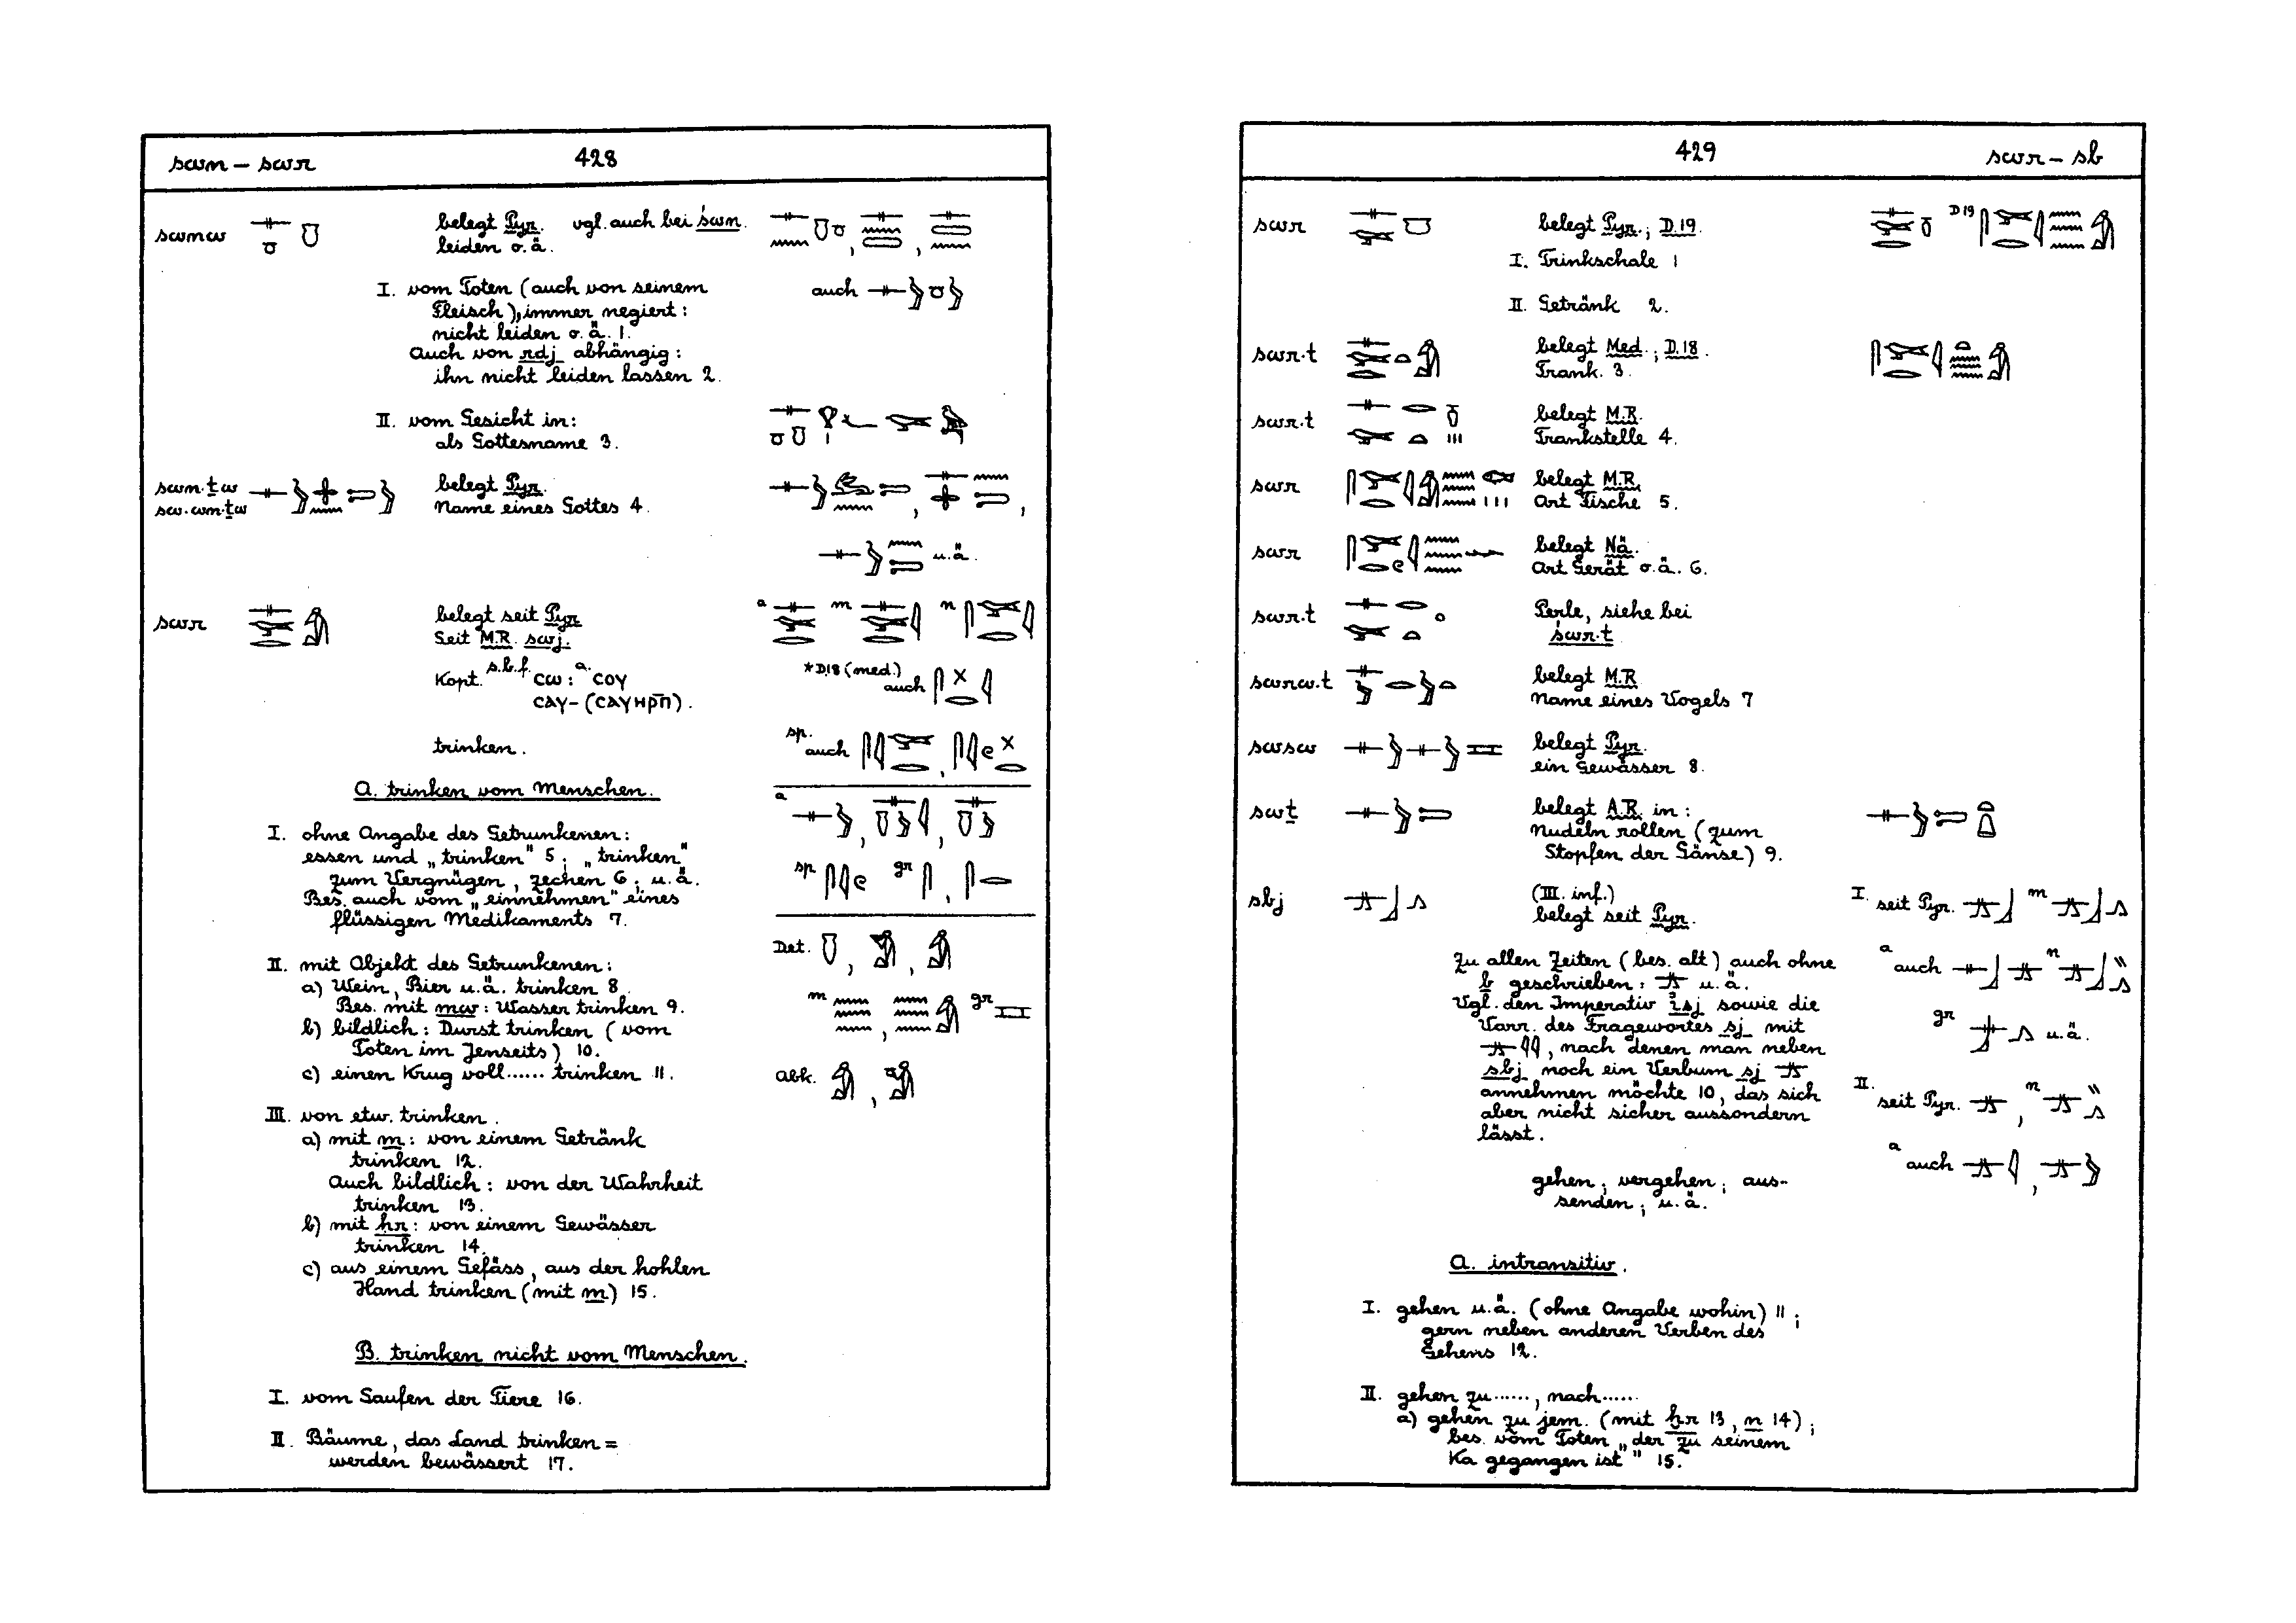 swn – swr
428
swnw
belegt Pyr. vgl. auch bei śwn.
leiden o. ä.
I. vom Toten (auch von seinem
Fleisch), immer negiert:
nicht leiden o. ä. 1.
Auch von rdj abhängig:
ihn nicht leiden lassen 2.
auch
II. vom Gesicht in:
als Gottesname 3.
swn·ṯw
sw·wn·ṯw
belegt Pyr.
Name eines Gottes 4.
u. ä.
swr
belegt seit Pyr.
Seit M.R. swj.
Kopt. s.b.f. ⲥⲱ : a. ⲥⲟⲩ
ⲥⲁⲩ- (ⲥⲁⲩⲏⲣⲡ̄).
trinken.
a m n
*D18 (med.) auch
sp. auch
a
sp gr
Det.
m gr
Abk.
A. trinken vom Menschen.
I. ohne Angabe des Getrunkenen:
essen und „trinken" 5; „trinken"
zum Vergnügen, zechen 6; u. ä.
Bes. auch vom „einnehmen" eines
flüssigen Medikaments 7.
II. mit Objekt des Getrunkenen:
a) Wein, Bier u. ä. trinken 8
Bes. mit mw: Wasser trinken 9.
b) bildlich: Durst trinken (vom
Toten im Jenseits) 10.
c) einen Krug voll...... trinken 11.
III. von etw. trinken.
a) mit m: von einem Getränk
trinken 12.
Auch bildlich: von der Wahrheit
trinken 13.
b) mit ḥr: von einem Gewässer
trinken 14.
c) aus einem Gefäss, aus der hohlen
Hand trinken (mit m) 15.
B. trinken nicht vom Menschen.
I. vom Saufen der Tiere 16.
II. Bäume, das Land trinken =
werden bewässert 17.
429
swr – sb
swr
belegt Pyr.; D.19.
D19
I. Trinkschale 1
II. Getränk 2.
swr·t
belegt Med.; D.18.
Trank. 3.
swr·t
belegt M.R.
Trankstelle 4.
swr
belegt M.R.
Art Fische 5.
swr
belegt Nä.
Art Gerät o. ä. 6.
swr·t
Perle, siehe bei
śwr·t
swrw·t
belegt M.R
Name eines Vogels 7
swsw
belegt Pyr.
ein Gewässer 8.
swṯ
belegt A.R. in:
Nudeln rollen (zum
Stopfen der Gänse) 9.
sbj
(III. inf.)
belegt seit Pyr.
I. seit Pyr. m
a auch n
gr u. ä.
II. seit Pyr. , n
a auch ,
Zu allen Zeiten (bes. alt) auch ohne
b geschrieben: u. ä.
Vgl. den Imperativ i̓sj sowie die
Varr. des Fragewortes sj mit
, nach denen man neben
sbj noch ein Verbum sj
annehmen möchte 10, das sich
aber nicht sicher aussondern
lässt.
gehen; vergehen; aus-
senden; u. ä.
A. intransitiv.
I. gehen u. ä. (ohne Angabe wohin) 11;
gern neben anderen Verben des
Gehens 12.
II. gehen zu......, nach......
a) gehen zu jem. (mit ḫr 13, n 14);
bes. vom Toten „der zu seinem
Ka gegangen ist" 15.